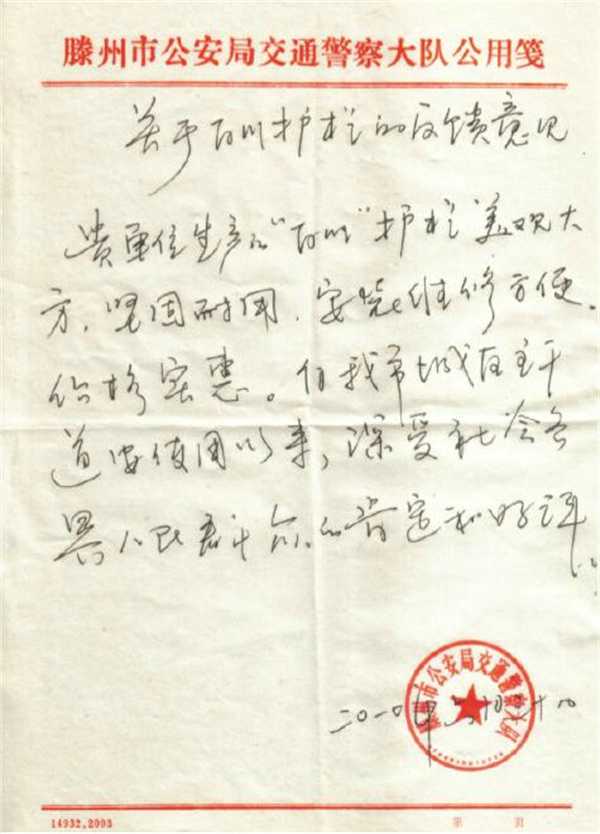 滕州市公安局交通警察大队公用笺
关于百川护栏的反馈意见
贵单位生产的"百川"护栏美观大
方，坚固耐用，安装维修方便，
价格实惠。自我市城区主干
道安使用以来，深受社会各
界人民群众的肯定和好评。
二〇一〇年
滕州市公安局交通警察大队
14932.2093
第 页